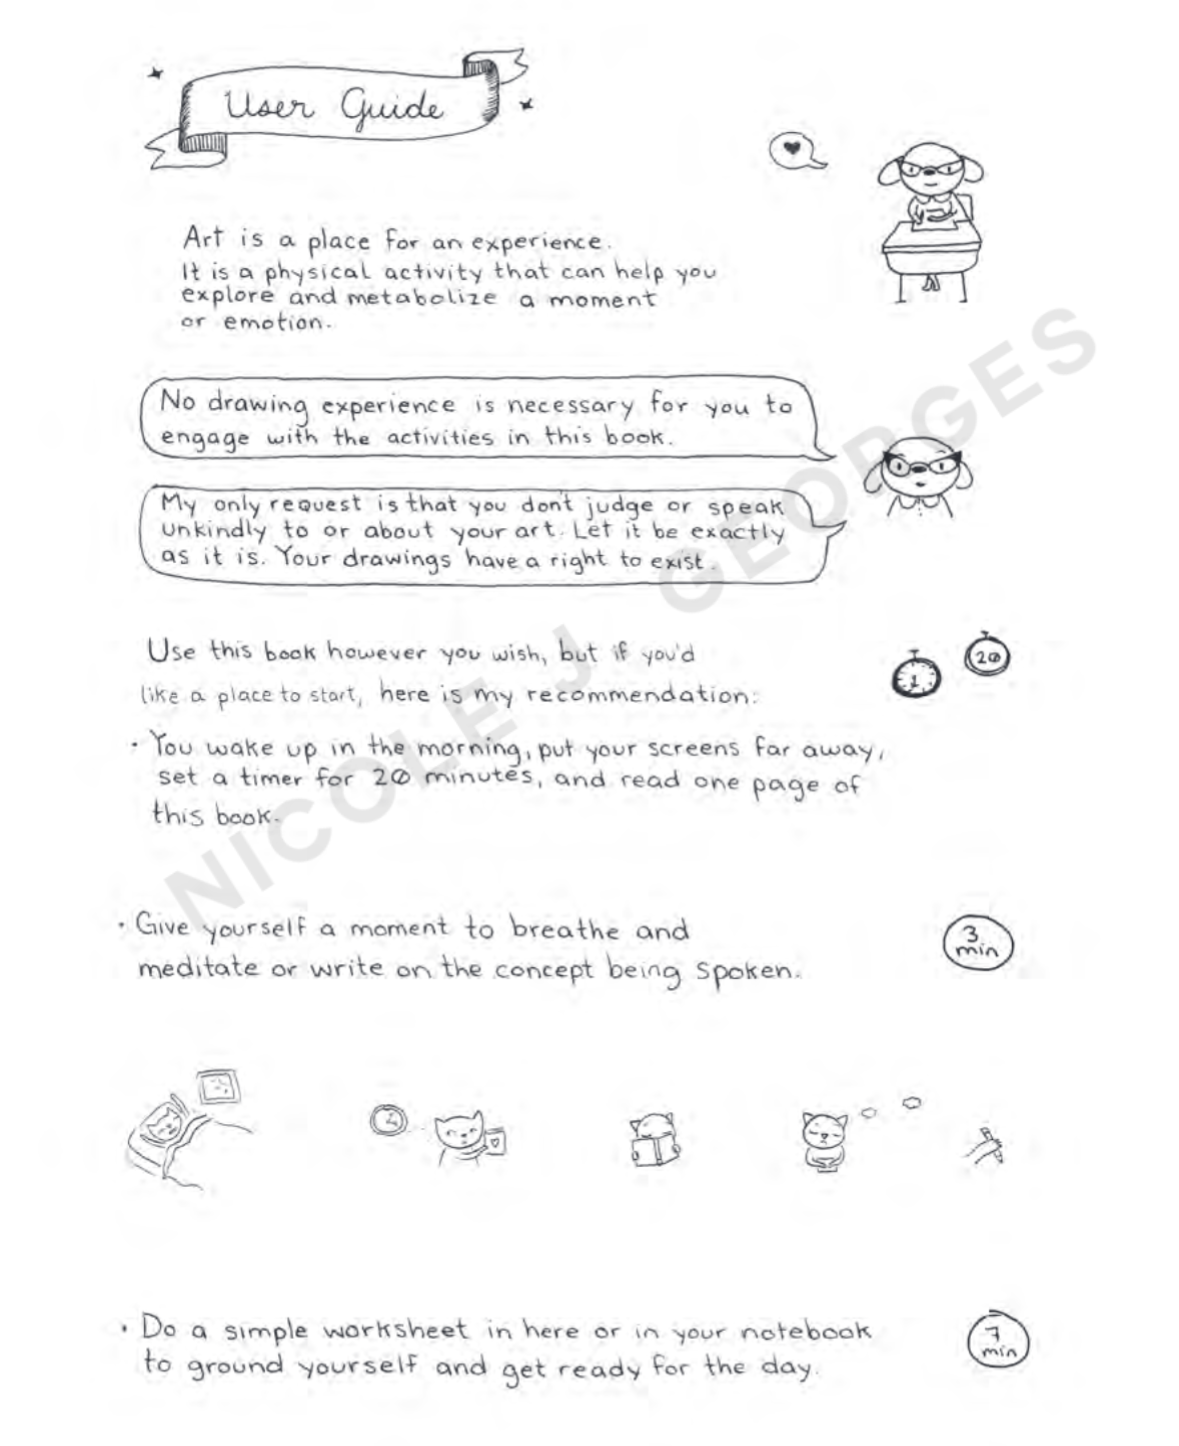 User Guide
Art is a place for an experience.
It is a physical activity that can help you
explore and metabolize a moment
or emotion.
No drawing experience is necessary for you to
engage with the activities in this book.
My only request is that you don't judge or speak
unkindly to or about your art. Let it be exactly
as it is. Your drawings have a right to exist.
Use this book however you wish, but if you'd
like a place to start, here is my recommendation:
1
20
• You wake up in the morning, put your screens far away,
set a timer for 20 minutes, and read one page of
this book.
• Give yourself a moment to breathe and
meditate or write on the concept being spoken.
3
min
• Do a simple worksheet in here or in your notebook
to ground yourself and get ready for the day.
7
min
NICOLE J. GEORGES